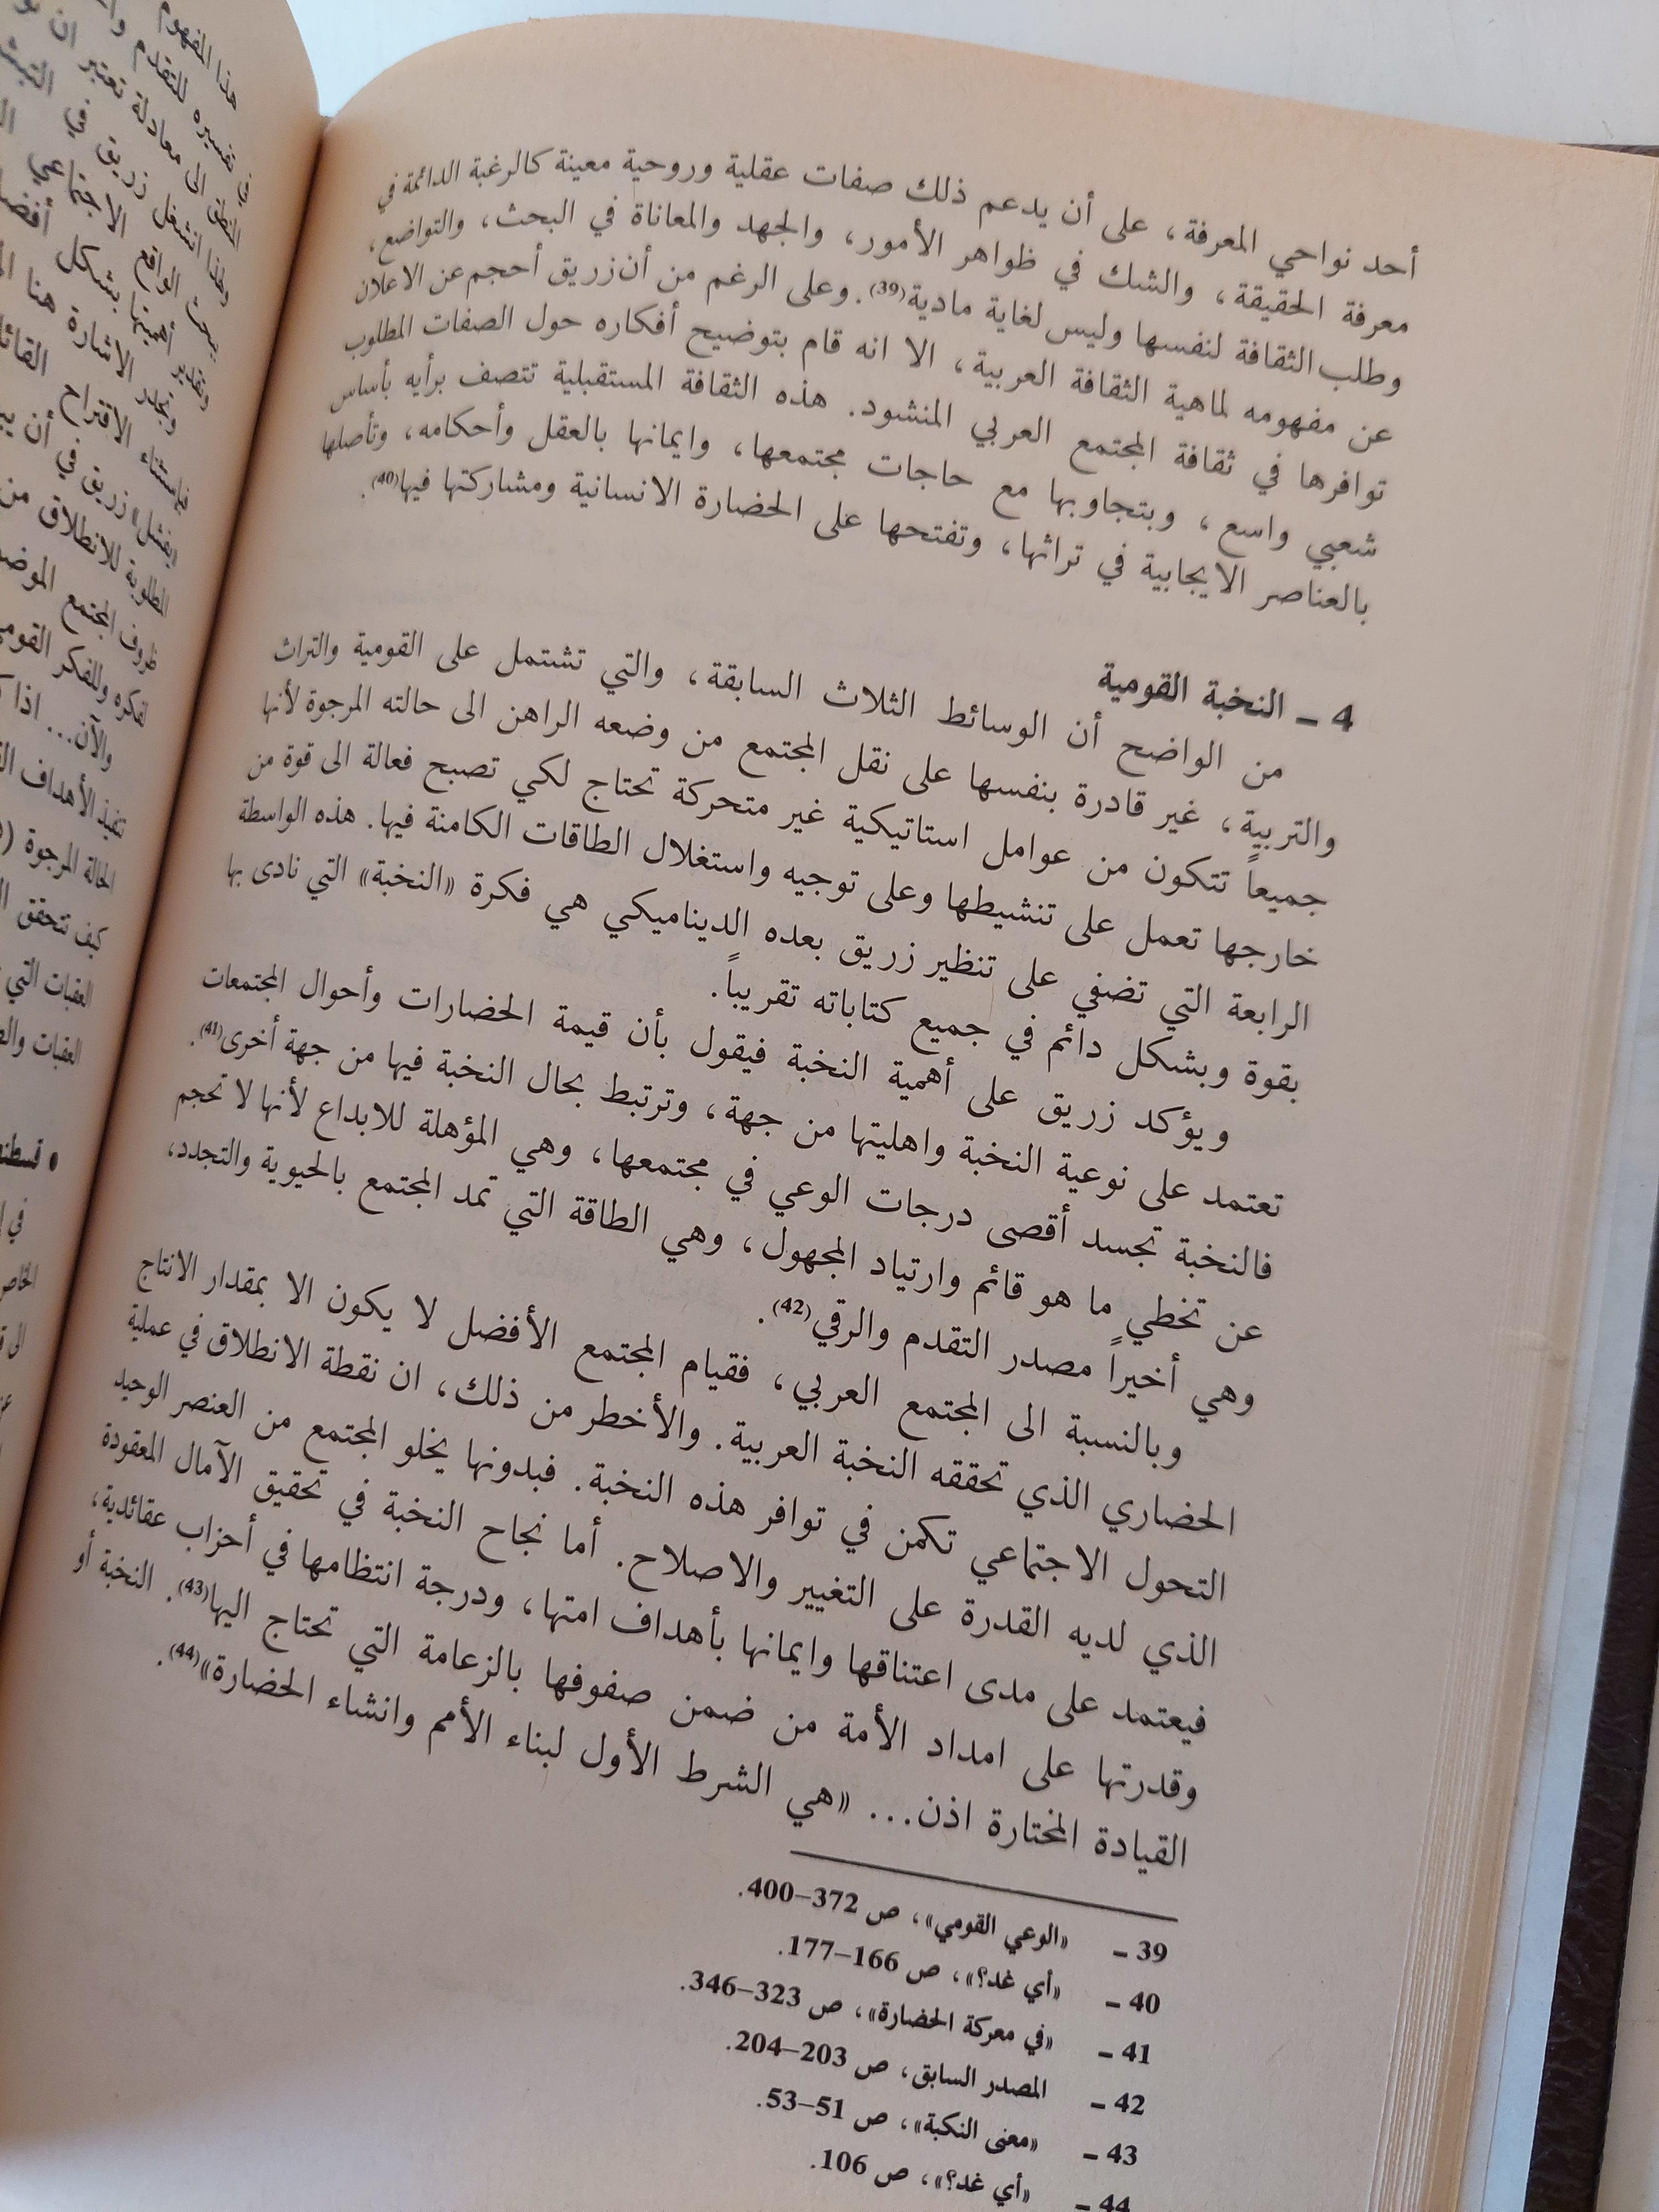 أحد نواحي المعرفة، على أن يدعم ذلك صفات عقلية وروحية معينة كالرغبة الدائمة في
معرفة الحقيقة، والشك في ظواهر الأمور، والجهد والمعاناة في البحث، والتواضع،
وطلب الثقافة لنفسها وليس لغاية مادية(39). وعلى الرغم من أن زريق أحجم عن الاعلان
عن مفهومه لماهية الثقافة العربية، الا انه قام بتوضيح أفكاره حول الصفات المطلوب
توافرها في ثقافة المجتمع العربي المنشود. هذه الثقافة المستقبلية تتصف برأيه بأساس
شعبي واسع، وبتجاوبها مع حاجات مجتمعها، وايمانها بالعقل وأحكامه، وتأصلها
بالعناصر الايجابية في تراثها، وتفتحها على الحضارة الانسانية ومشاركتها فيها(40).
4 ـ النخبة القومية
من الواضح أن الوسائط الثلاث السابقة، والتي تشتمل على القومية والتراث
والتربية، غير قادرة بنفسها على نقل المجتمع من وضعه الراهن الى حالته المرجوة لأنها
جميعاً تتكون من عوامل استاتيكية غير متحركة تحتاج لكي تصبح فعالة الى قوة من
خارجها تعمل على تنشيطها وعلى توجيه واستغلال الطاقات الكامنة فيها. هذه الواسطة
الرابعة التي تضفي على تنظير زريق بعده الديناميكي هي فكرة «النخبة» التي نادى بها
بقوة وبشكل دائم في جميع كتاباته تقريباً.
ويؤكد زريق على أهمية النخبة فيقول بأن قيمة الحضارات وأحوال المجتمعات
تعتمد على نوعية النخبة واهليتها من جهة، وترتبط بحال النخبة فيها من جهة أخرى(41).
فالنخبة تجسد أقصى درجات الوعي في مجتمعها، وهي المؤهلة للابداع لأنها لا تحجم
عن تخطي ما هو قائم وارتياد المجهول، وهي الطاقة التي تمد المجتمع بالحيوية والتجدد،
وهي أخيراً مصدر التقدم والرقي(42).
وبالنسبة الى المجتمع العربي، فقيام المجتمع الأفضل لا يكون الا بمقدار الانتاج
الحضاري الذي تحققه النخبة العربية. والأخطر من ذلك، ان نقطة الانطلاق في عملية
التحول الاجتماعي تكمن في توافر هذه النخبة. فبدونها يخلو المجتمع من العنصر الوحيد
الذي لديه القدرة على التغيير والاصلاح. أما نجاح النخبة في تحقيق الآمال المعقودة
فيعتمد على مدى اعتناقها وايمانها بأهداف امتها، ودرجة انتظامها في أحزاب عقائدية،
وقدرتها على امداد الأمة من ضمن صفوفها بالزعامة التي تحتاج اليها(43). النخبة أو
القيادة المختارة اذن... «هي الشرط الأول لبناء الأمم وانشاء الحضارة»(44).
39 ـ «الوعي القومي»، ص 372–400.
40 ـ «أي غد؟»، ص 166–177.
41 ـ «في معركة الحضارة»، ص 323–346.
42 ـ المصدر السابق، ص 203–204.
43 ـ «معنى النكبة»، ص 51–53.
44 ـ «أي غد؟»، ص 106.